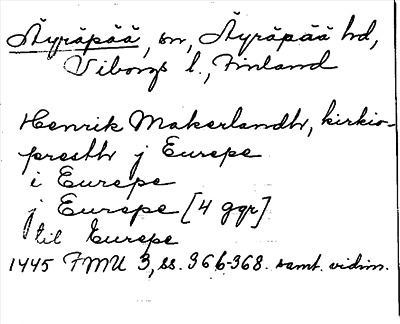 Äyräpää, sn, Äyräpää hd,
Viborgs l., Finland
Henrik Makerlandh, kirkio-
presth j Eurepe
i Eurepe
j Eurepe [4 ggr]
til Eurepe
1445 FMU 3, ss. 366-368. samt. vidim.